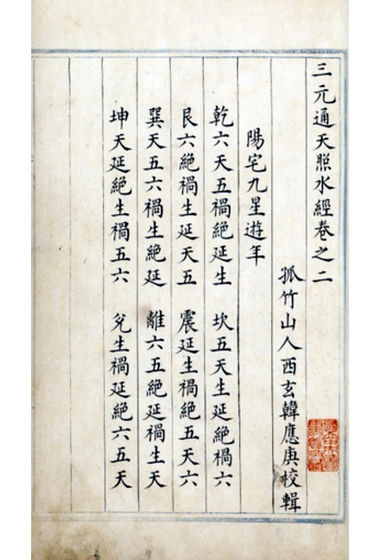 三元通天照水經卷之二
孤竹山人西玄韓應庚校輯
陽宅九星遊年
乾六天五禍絕延生　坎五天生延絕禍六
艮六絕禍生延天五　震延生禍絕五天六
巽天五六禍生絕延　離六五絕延禍生天
坤天延絕生禍五六　兌生禍延絕六五天